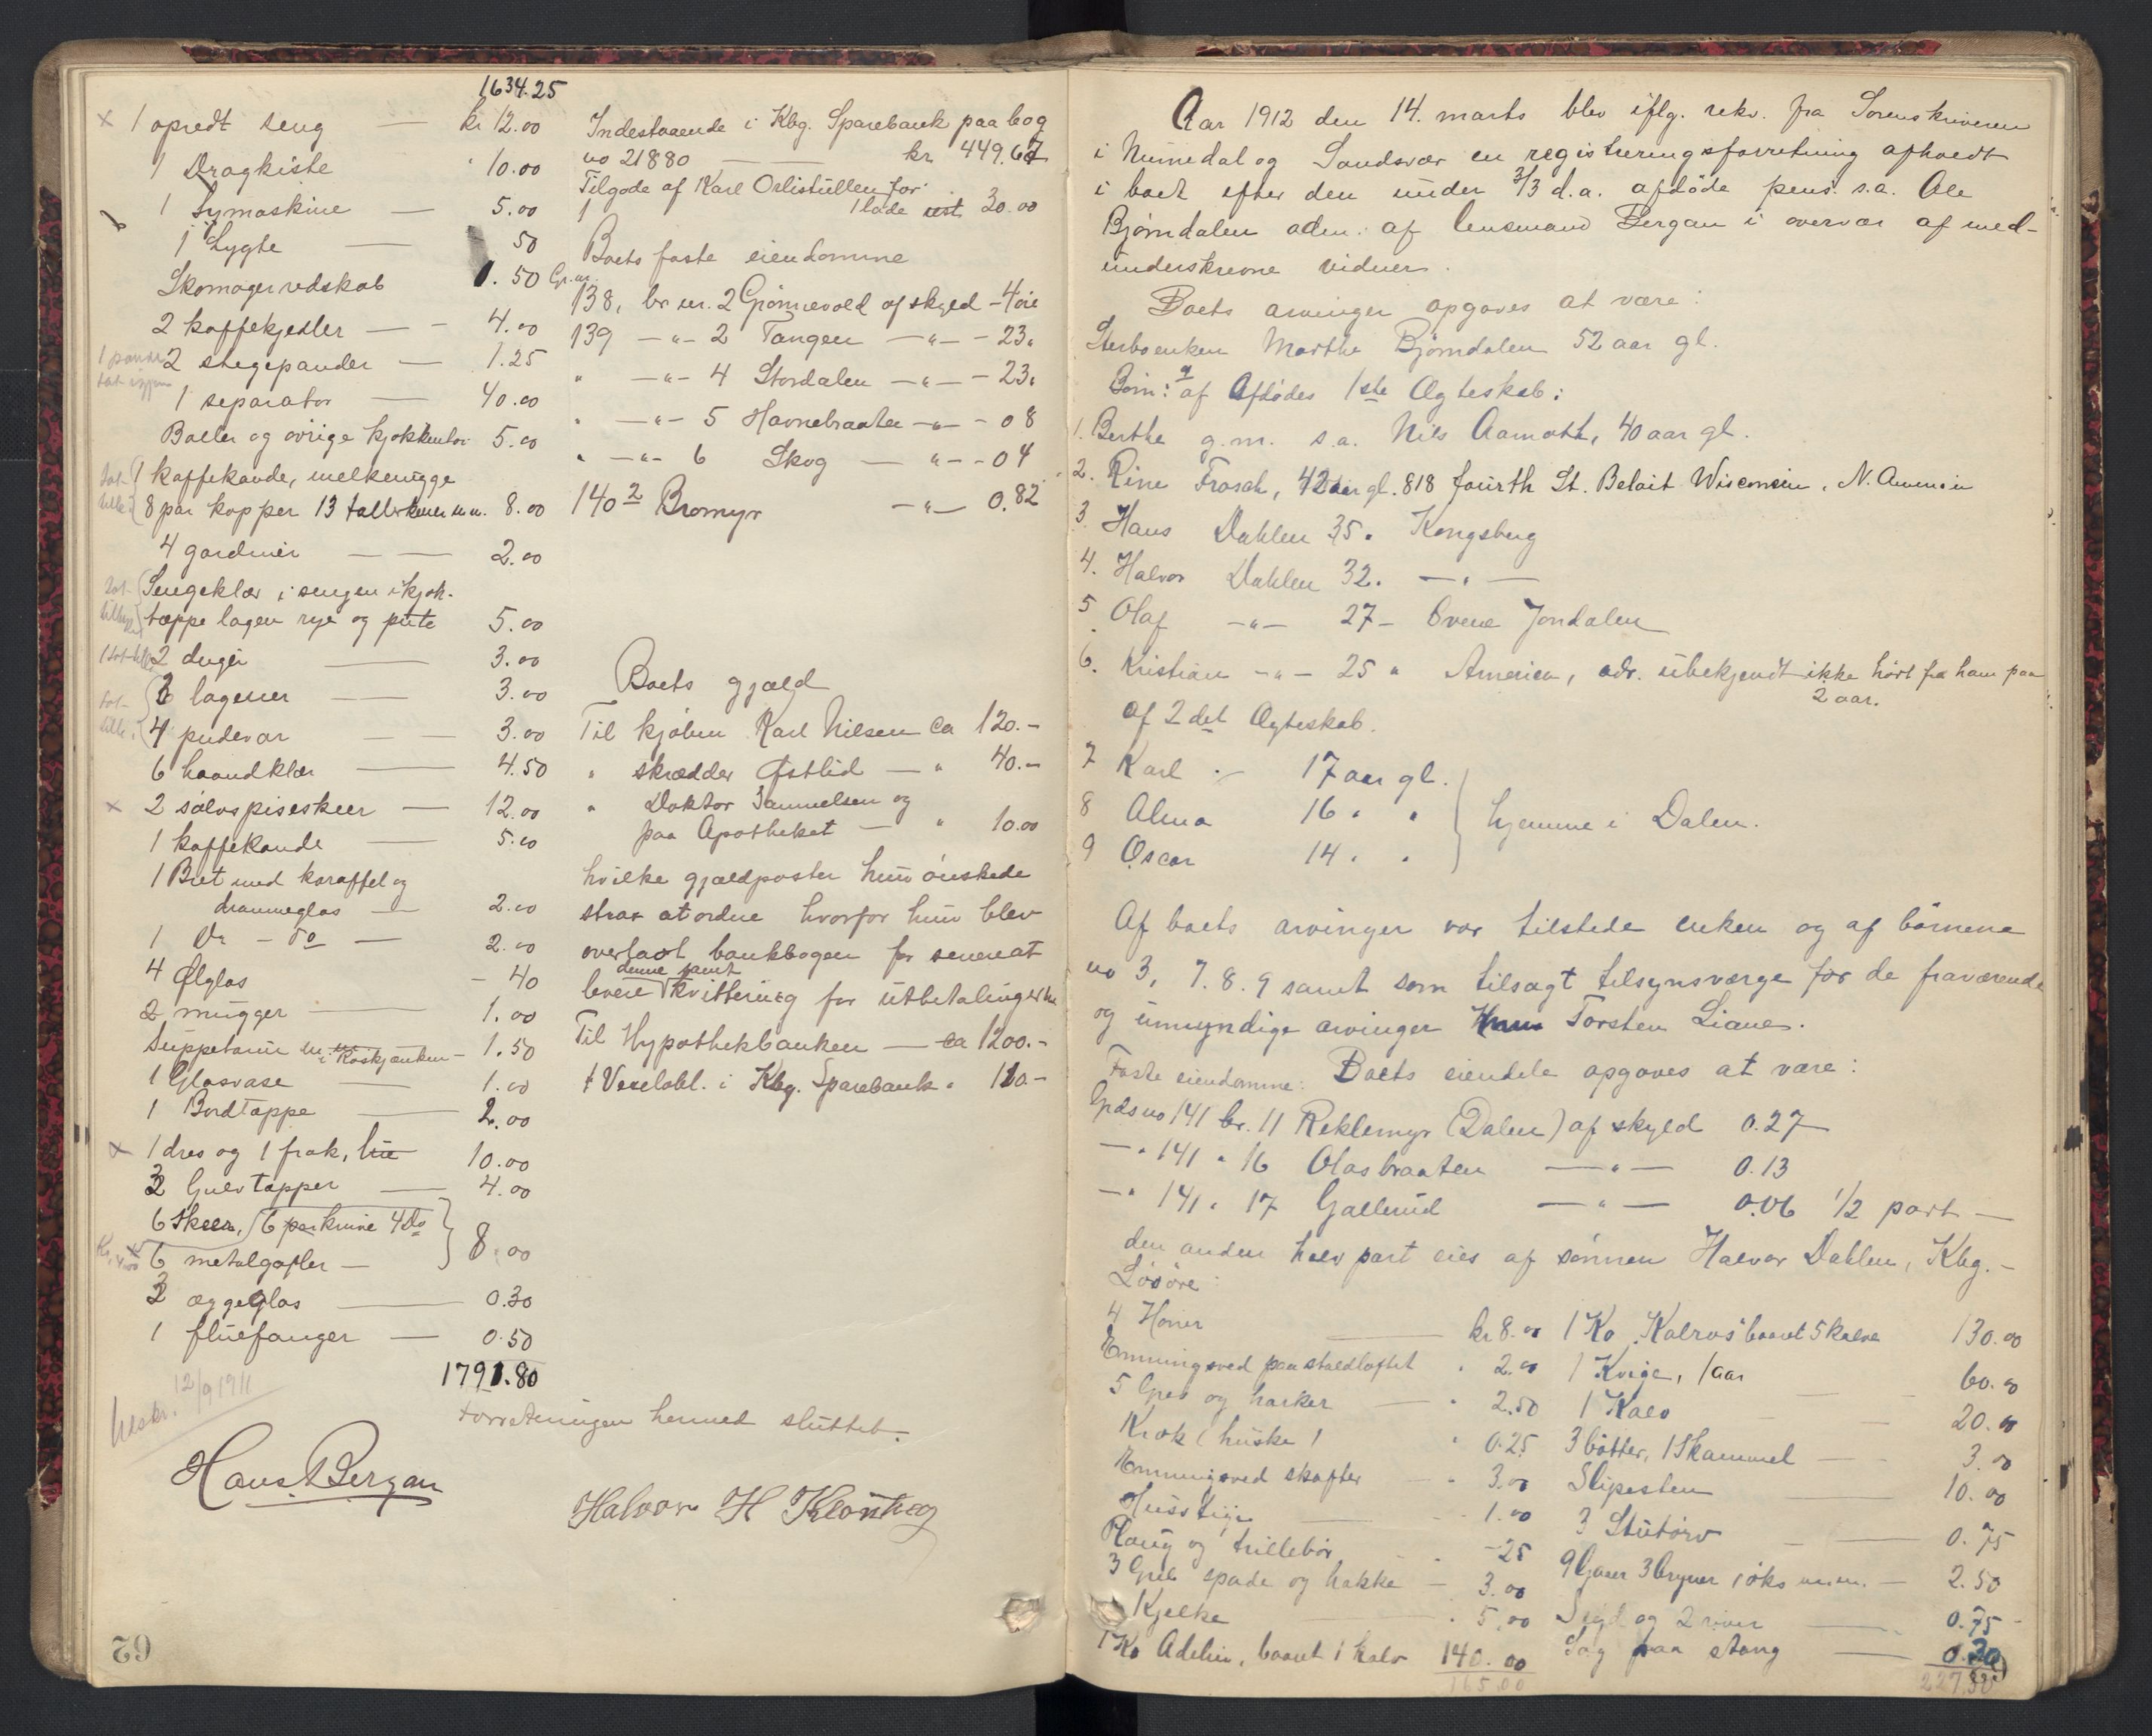 1634.25
1 opredt seng — kr 12.00
1 Dragkiste " 10.00
1 Symaskine — 5.00
1 Lygte — 50
Skomagerredskab 1.50
2 kaffekjedler — - 4.00
2 stegepander — 1.25
1 separator — 40.00
Baller og øvrige kjøkkentøi 5.00
1 kaffekande, melkemugge
8 par kopper 13 tallerkener m.m. 8.00
4 gardiner — — 2.00
Sengeklær i sengen i kjøk.
tæppe lagen rye og pute 5.00
2 duger — 3.00
3 lagener — 3.00
4 pudevar — — 3.00
6 haandklær — 4.50
2 sølvspiseskeer — 12.00
1 kaffekande — 5.00
1 Bret med karaffel og
drammeglas — 2.00
1 Do - To — 2.00
4 Ølglas - 40
2 mugger — 1.00
Suppeterrin 1.50
1 Glasvase — 1.00
1 Bordtæppe — 2.00
1 dres og 1 frak, 10.00
3 Gulvtæpper — 4.00
6 Skeer, 6 par knive 4 Do
6 metalgafler — 8.00
3 æggeglas — 0.30
1 fluefanger — 0.50
1791.80
12/9 1911
Forretningen hermed sluttet.
Hans Bergan
Halvor H
62
Indestaaende i Kbg. Sparebank paa bog
no 21880 — — kr 449.67
Tilgode af Karl Oslistullen for
1 lade rest 30.00
Boets faste eiendomme
Gr.nr.
138, br nr. 2 Grønnevold af skyld - 4 øre
139 -"- 2 Tangen -"- - 23"
" -"- 4 Stordalen -"- - 23"
" -"- 5 Havnebraaten -"- - 08
" -"- 6 Skog — "- - 04
140 2 Bromyr -"- 0.82
Boets gjæld
Til kjøbm Karl Nilsen ca 120.-
" skrædder Østlid — " 40.-
" Doktor Samuelsen og
paa Apotheket — " 10.00
hvilke gjældposter hun ønskede
strax at ordne hvorfor hun blev
overladt bankbogen for senere at
denne samt
levere kvittering for utbetalinger
Til Hypothekbanken — ca 1200.-
1 Vexelobl. i Kbg. Sparebank " 110.-
Aar 1912 den 14. marts blev iflg. rekv. fra Sorenskriveren
i Numedal og Sandsvær en registreringsforretning afholdt
i boet efter den under 3/3 d.a. afdøde pens. s.a. Ole
Bjørndalen adm. af lensmand Bergan i overvær af med-
underskrevne vidner.
Boets arvinger opgaves at være:
Sterboenken Marthe Bjørndalen 52 aar gl.
Børn: af Afdødes 1ste Ægteskab:
1. Berthe g.m. s.a. Nils Aamoth, 40 aar gl.
2. Rine Frosch, 42 aar gl. 818 fourth St. Beloit Wisconsin, N. Amerika
3 Hans Dahlen 35 " Kongsberg
4. Halvor Dahlen 32. — " —
5 Olaf -"- 27 - Øvre Jondalen
6. Kristian -"- 25 " America, adr. ubekjendt ikke hørt fra ham paa
2 aar.
af 2det Ægteskab.
7 Karl 17 aar gl.
8 Alma 16 " "
9 Oscar 14 " "
hjemme i Dalen.
Af boets arvinger var tilstede enken og af børnene
no 3, 7. 8. 9 samt som tilsagt tilsynsværge for de fraværende
og umyndige arvinger Torsten Liane.
Boets eiendele opgaves at være:
Faste eiendomme:
Grdsno 141 br. 11 Reklemyr (Dalen) af skyld 0.27
-" 141 " 16 Olasbraaten — " — 0.13
-" 141 " 17 Gallerud — " — 0.06 1/2 part —
den anden halvpart eies af sønnen Halvor Dahlen, Kbg. -
Løsøre:
4 Høner — kr 8.00
Emningsved paa staldloftet " 2.00
5 Greb og harker — " 2.50
Krok (huske) " 0.25
Emningsved skafter — " 3.00
Husstige — " 1.00
Plaug og trillebør - 25
3 Greb spade og hakke — 3.00
1 Kjelke — " 5.00
1 Ko Adelin, baaret 1 kalv 140.00
165.00
1 Ko "Kalros" baaret 5 kalve 130.00
1 Kvige, 1 aar — 60.00
1 Kalv — 20.00
3 bøtter, 1 Skammel — 3.00
Slipesten — 10.00
3 Stutorv — 0.75
9 Ljaaer 3 bryner 1 øks m.m. — 2.50
Sigd og 2 river — 0.75
Sag paa stang — 0.30
227.30